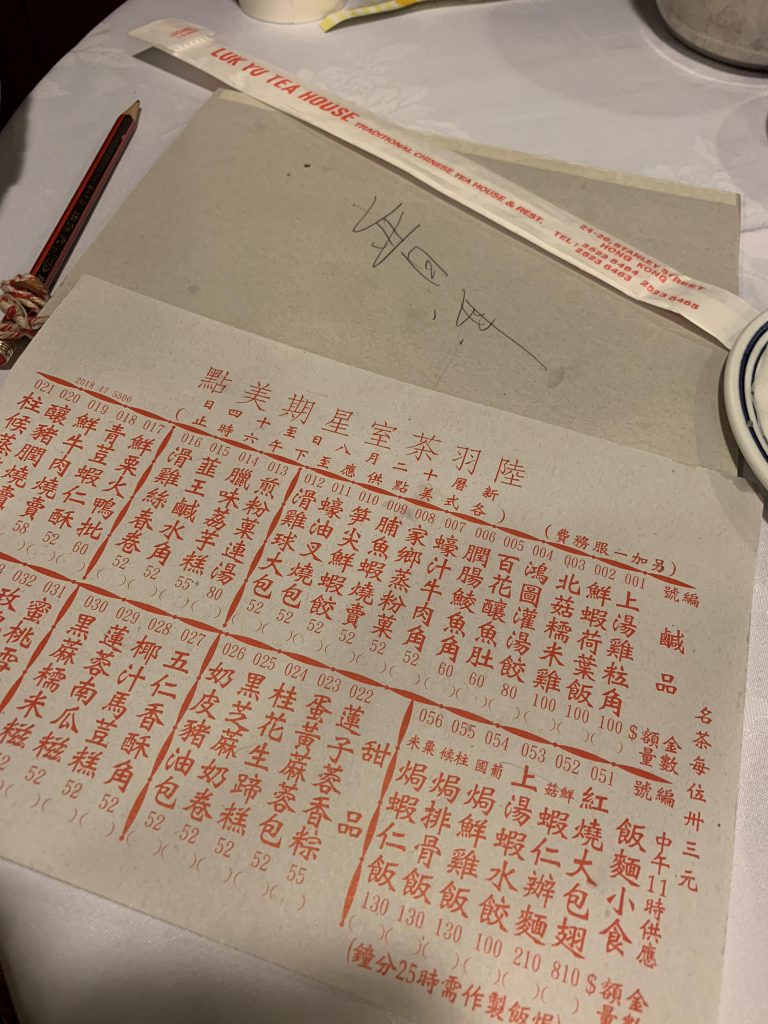 LUK YU TEA HOUSE
TRADITIONAL CHINESE TEA HOUSE & REST.
24-26, STANLEY STREET
HONG KONG
TEL: 2523 5464 2523 5465
2523 5463
陸羽茶室星期美點
2018 47 5500
新曆十二月八日至十四日
(各式美點供應至下午六時止)
(另加一服務費)
名茶每位卅三元
編號 鹹品 金額 數量 $
001 上湯雞粒角 100 ( )
002 鮮蝦荷葉飯 100 ( )
003 北菇糯米雞 100 ( )
004 鴻圖灌湯餃 80 ( )
005 百花釀魚肚 60 ( )
006 膶腸鯪魚角 60 ( )
007 蠔汁牛肉角 52 ( )
008 家鄉蒸粉菓 52 ( )
009 脯魚蝦燒賣 52 ( )
010 笋尖鮮蝦餃 52 ( )
011 蠔油叉燒包 52 ( )
012 滑雞球大包 52 ( )
013 煎粉菓連湯 80 ( )
014 臘味荔芋糕 55 ( )
015 韮王鹹水角 52 ( )
016 滑雞絲春卷 52 ( )
017 鮮粟火鴨批 60 ( )
018 青荳蝦仁酥 52 ( )
019 鮮牛肉燒賣 52 ( )
020 釀豬膶燒賣 58
021 柱候蒸燒
甜品
022 蓮子蓉香粽 55 ( )
023 蛋黃麻蓉包 52 ( )
024 桂花生蹄糕 52 ( )
025 黑芝麻奶卷 52 ( )
026 奶皮豬油包 52 ( )
027 五仁香酥角 52 ( )
028 椰汁馬荳糕 52 ( )
029 蓮蓉南瓜糕 52 ( )
030 黑蔴糯米糍 52 ( )
031 蜜桃
032 玫
編號 飯麵小食 中午11時供應 金額 數量 $
051 紅燒大包翅 810 ( )
052 鮮菇蝦仁辦麵 210 ( )
053 上湯蝦水餃 100 ( )
054 葡國焗鮮雞飯 130 ( )
055 柱候焗排骨飯 130 ( )
056 粟米焗蝦仁飯 130 ( )
(焗飯製作需時25分鐘)